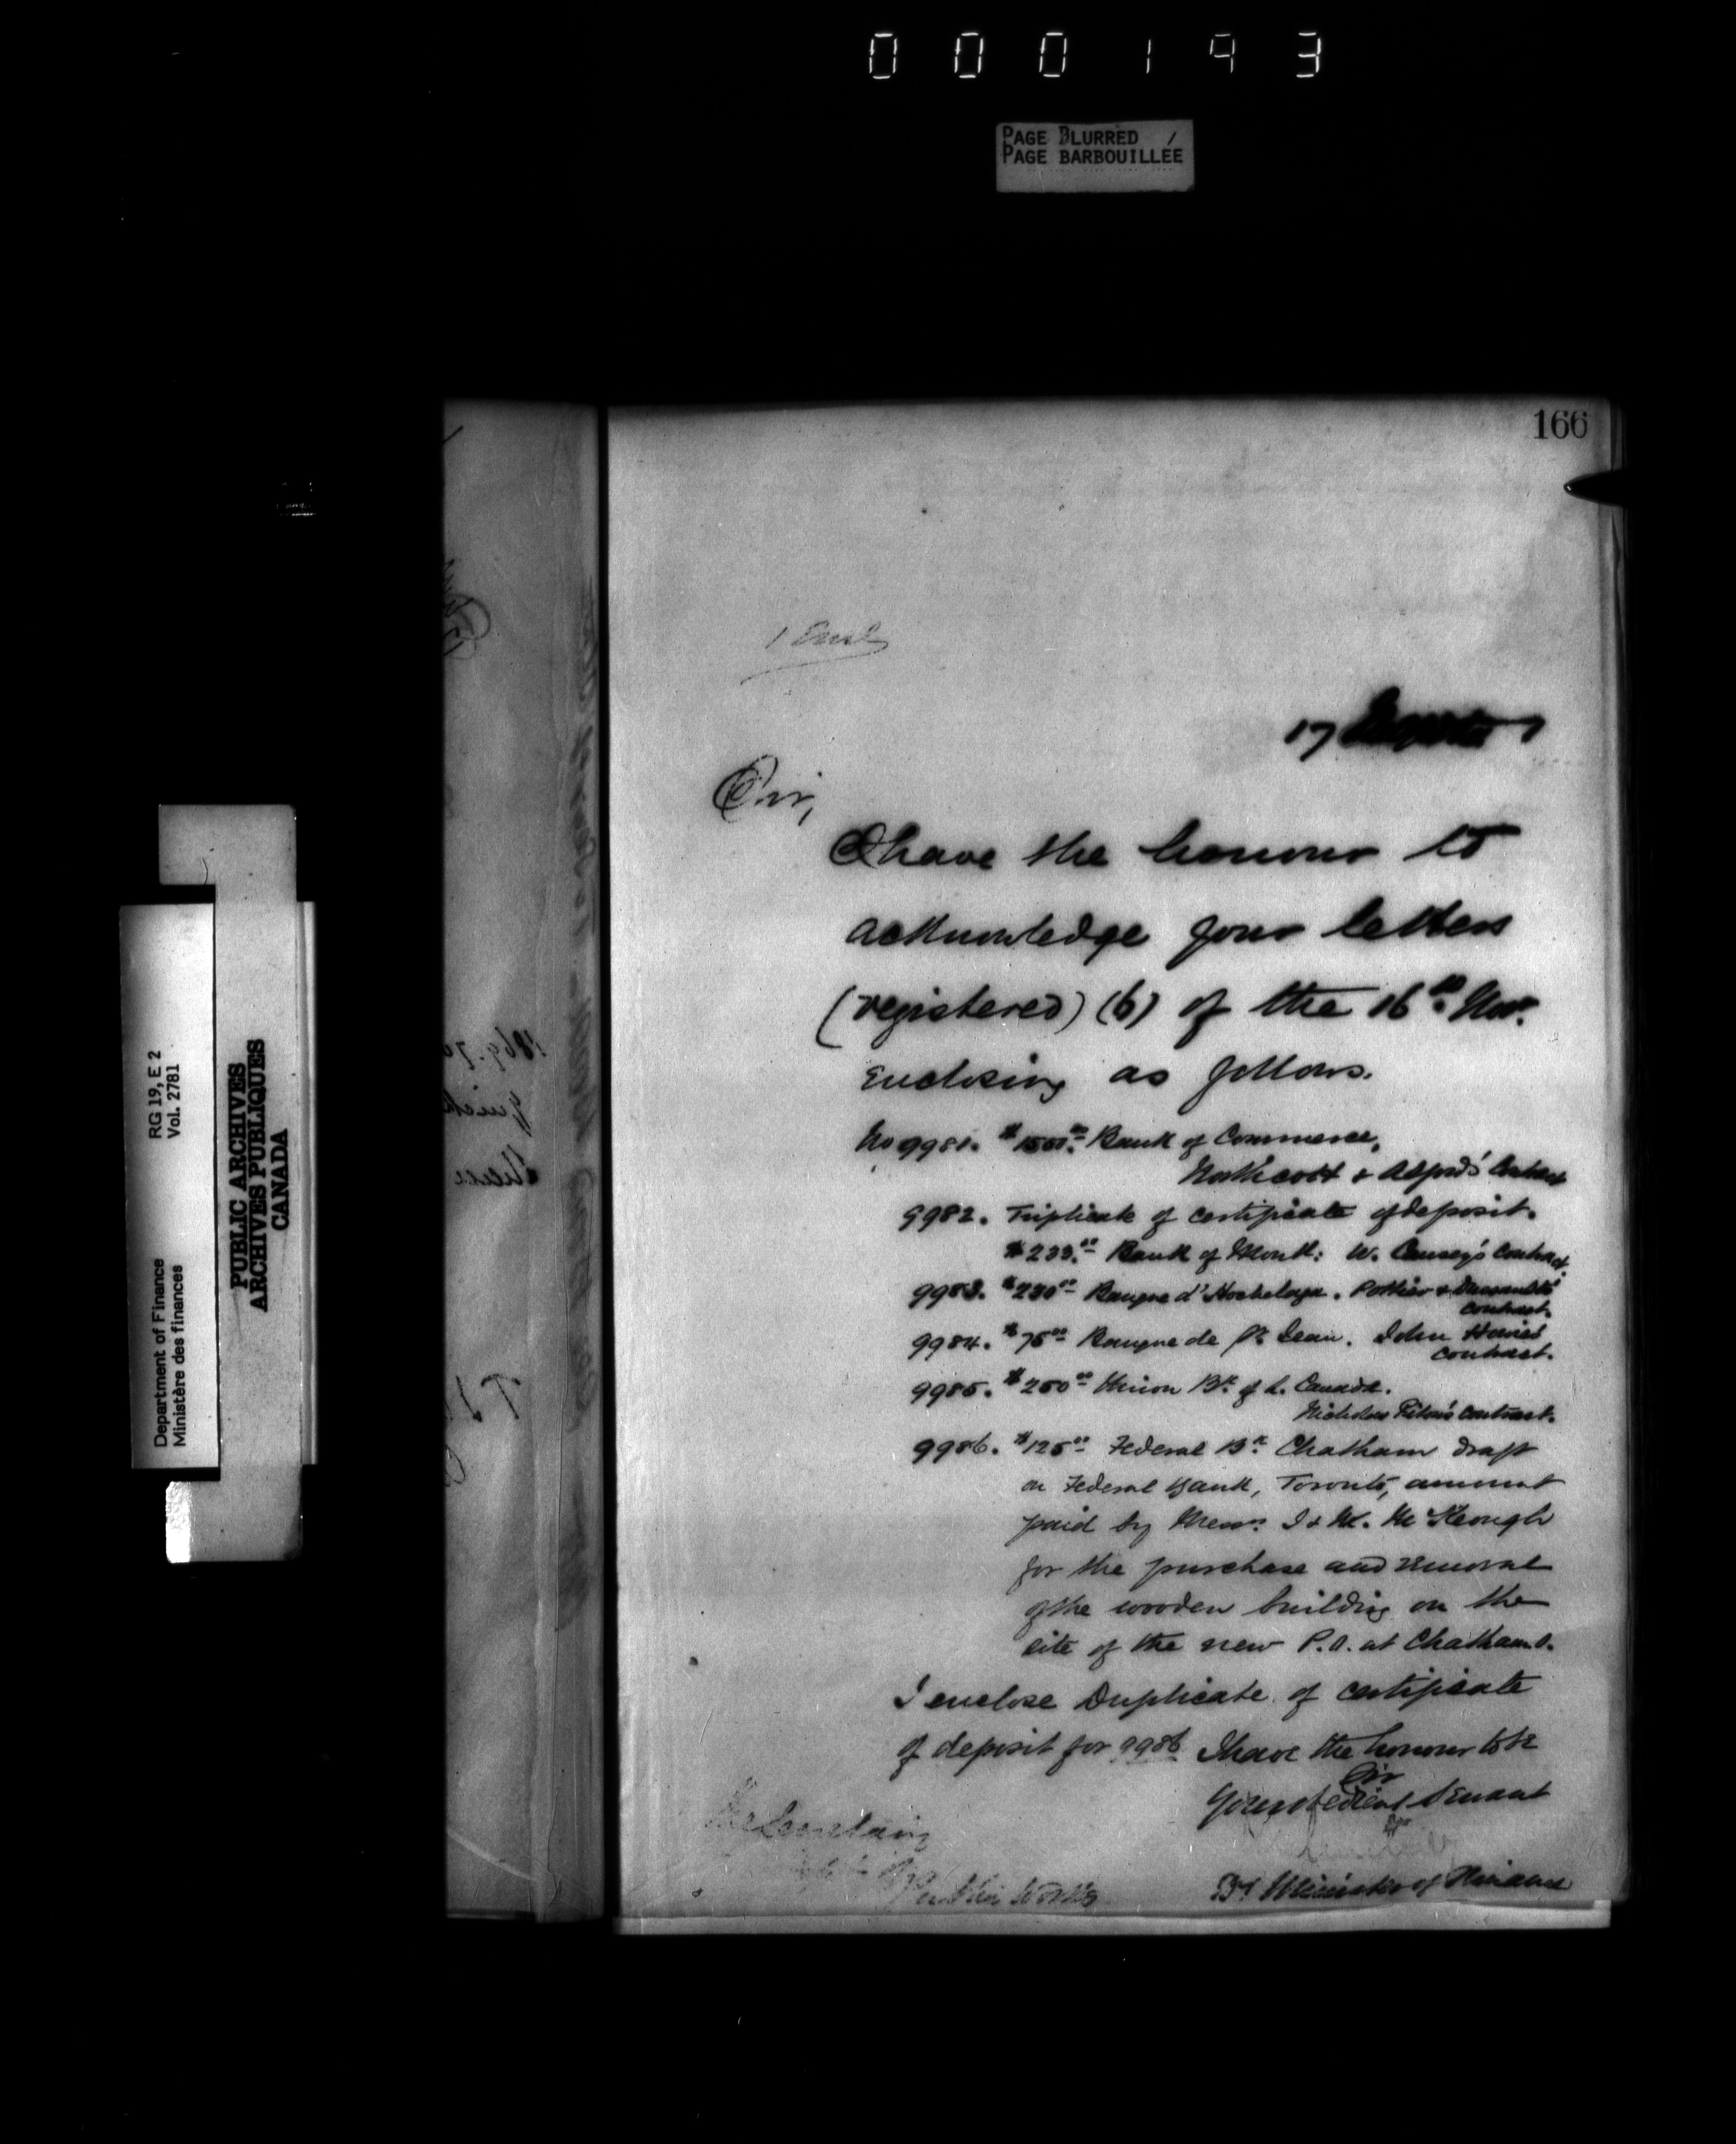 000193
PAGE BLURRED /
PAGE BARBOUILLÉE
166
1 Encl
17
Sir,
I have the honour to
acknowledge your letters
(registered) (6) of the 16th Nov.
enclosing as follows.
No 9981. $1500.00 Bank of Commerce,
Northcott & Alford's Contract
9982. Triplicate of certificate of deposit.
$233.00 Bank of Montl: W. Contract.
9983. $230.00 Banque d'Hochelaga. Pothier &
contract.
9984. $75.00 Banque de St. Jean. John
contract.
9985. $250.00 Union Bk. of L. Canada.
Nicholas Contract.
9986. $125.00 Federal Bk. Chatham draft
on Federal Bank, Toronto, amount
paid by Messrs. McKeough
for the purchase and removal
of the wooden building on the
site of the new P.O. at Chatham O.
I enclose Duplicate of certificate
of deposit for 9986 I have the honour to be
Sir
Your obedient Servant
The Secretary
Public Works
Dy Minister of Finance
Department of Finance RG 19, E 2
Ministère des finances Vol. 2781
PUBLIC ARCHIVES
ARCHIVES PUBLIQUES
CANADA